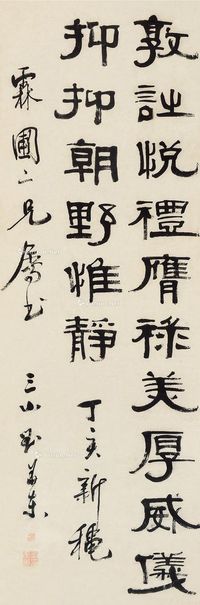 敦詩悅禮膺祿美厚威儀
抑抑朝野惟靜 丁亥新穐
霖圃二兄屬書 三山劉華東